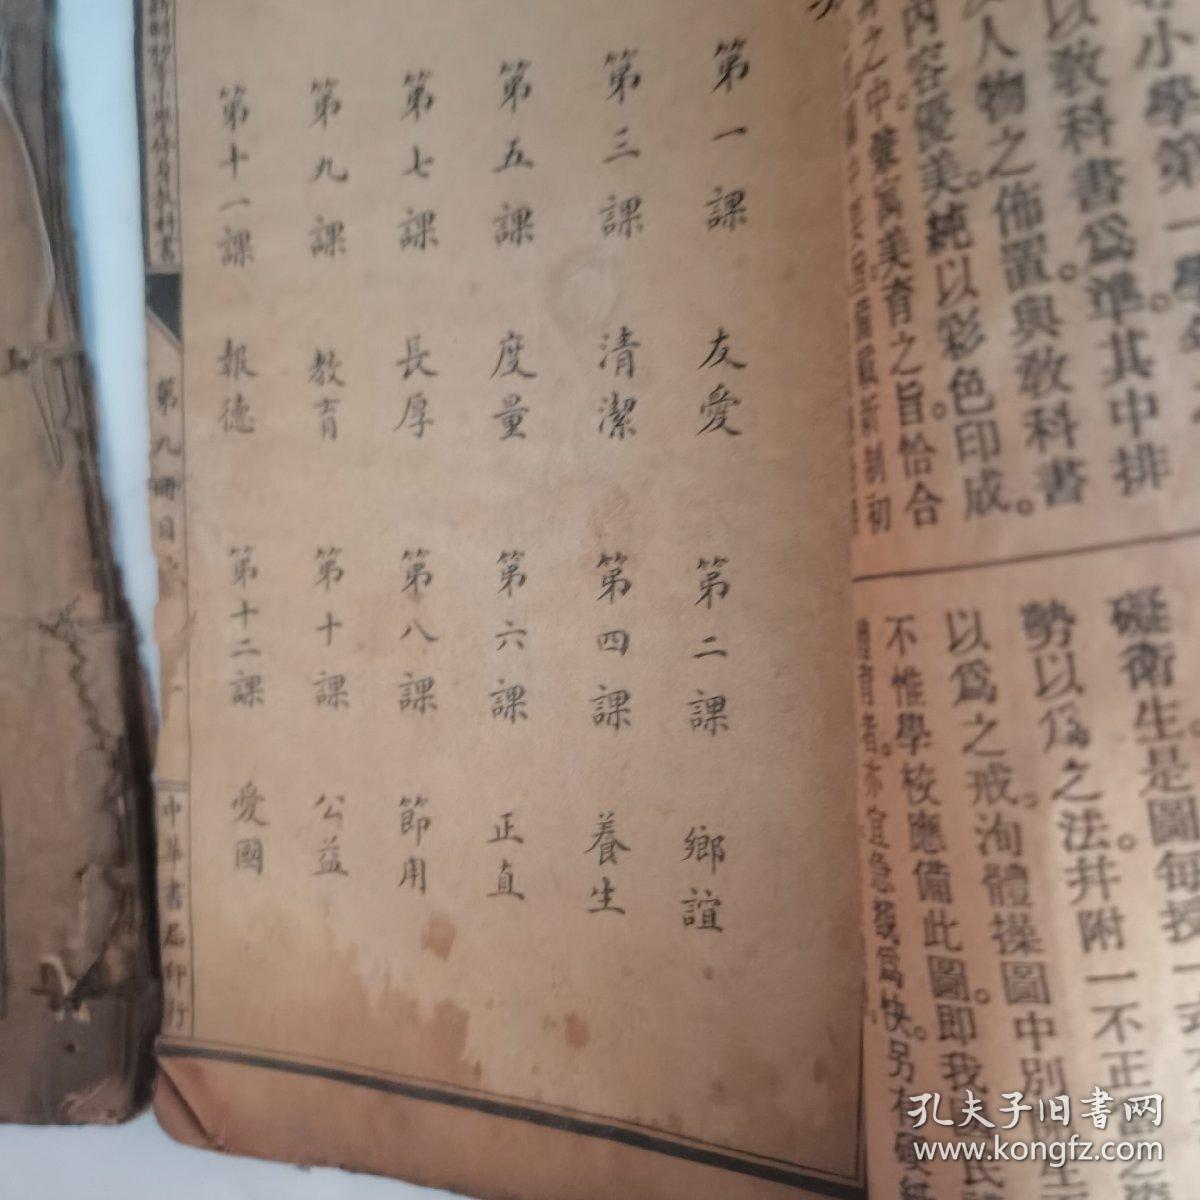 第一課 友愛 第二課 鄉誼
第三課 清潔 第四課 養生
第五課 度量 第六課 正直
第七課 長厚 第八課 節用
第九課 教育 第十課 公益
第十一課 報德 第十二課 愛國
小學修身教科書 第九冊目 中華書局印行
小學第一學
以教科書爲準其中排
人物之佈置與教科書
內容優美純以彩色印成
之中兼寓美育之旨恰合
新制初
礙衛生是圖每授一
勢以爲之法并附一不正
以爲之戒洵體操圖中別
不惟學校應備此圖卽我
宜急覩爲快另有
孔夫子旧书网
www.kongfz.com